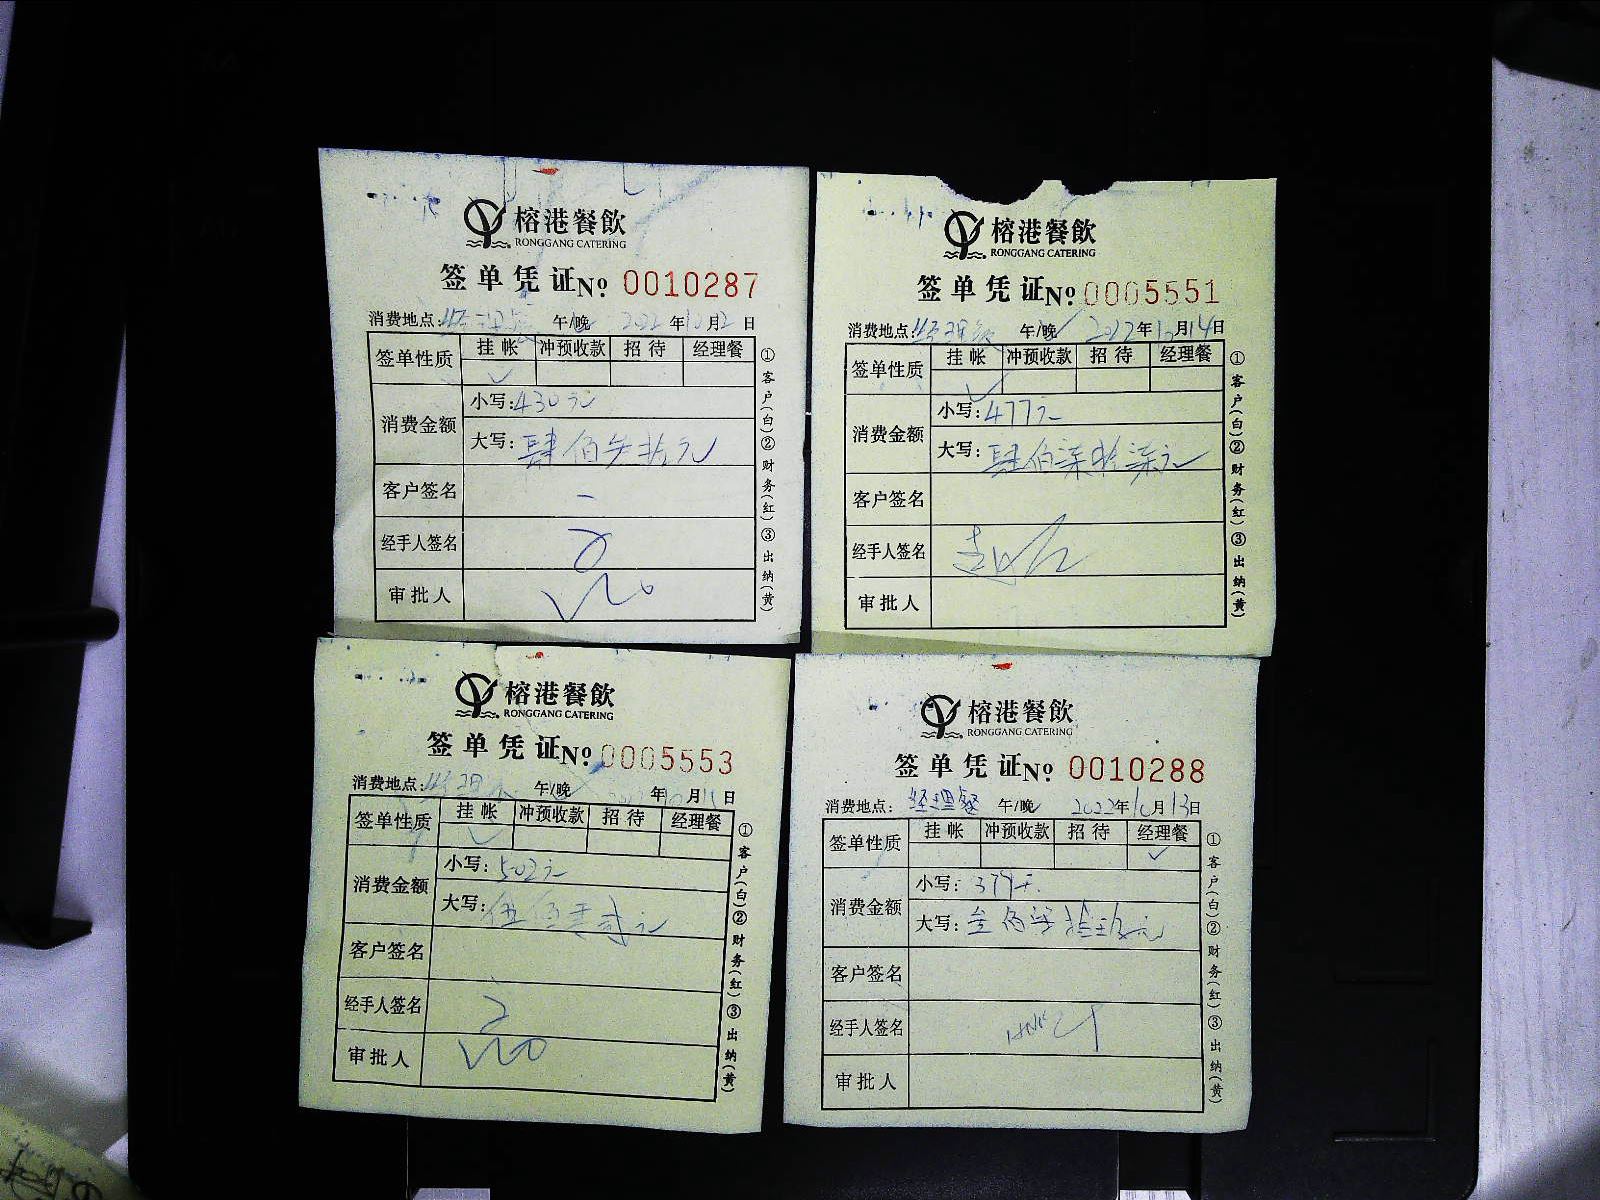 榕港餐飲
RONGGANG CATERING
签单凭证 No 0010287
消费地点: 午/晚 2022年10月12日
签单性质 挂帐 冲预收款 招待 经理餐
✓
消费金额 小写:430元
大写:肆佰叁拾元
客户签名
经手人签名
审批人
①客户(白)②财务(红)③出纳(黄)
榕港餐飲
RONGGANG CATERING
签单凭证 No 0005551
消费地点: 午/晚 2022年10月14日
签单性质 挂帐 冲预收款 招待 经理餐
✓
消费金额 小写:477元
大写:肆佰柒拾柒元
客户签名
经手人签名
审批人
①客户(白)②财务(红)③出纳(黄)
榕港餐飲
RONGGANG CATERING
签单凭证 No 0005553
消费地点: 午/晚 年10月 日
签单性质 挂帐 冲预收款 招待 经理餐
✓
消费金额 小写:502元
大写:伍佰零贰元
客户签名
经手人签名
审批人
①客户(白)②财务(红)③出纳(黄)
榕港餐飲
RONGGANG CATERING
签单凭证 No 0010288
消费地点: 经理餐 午/晚 2022年10月13日
签单性质 挂帐 冲预收款 招待 经理餐
✓
消费金额 小写:379元
大写:叁佰柒拾玖元
客户签名
经手人签名
审批人
①客户(白)②财务(红)③出纳(黄)